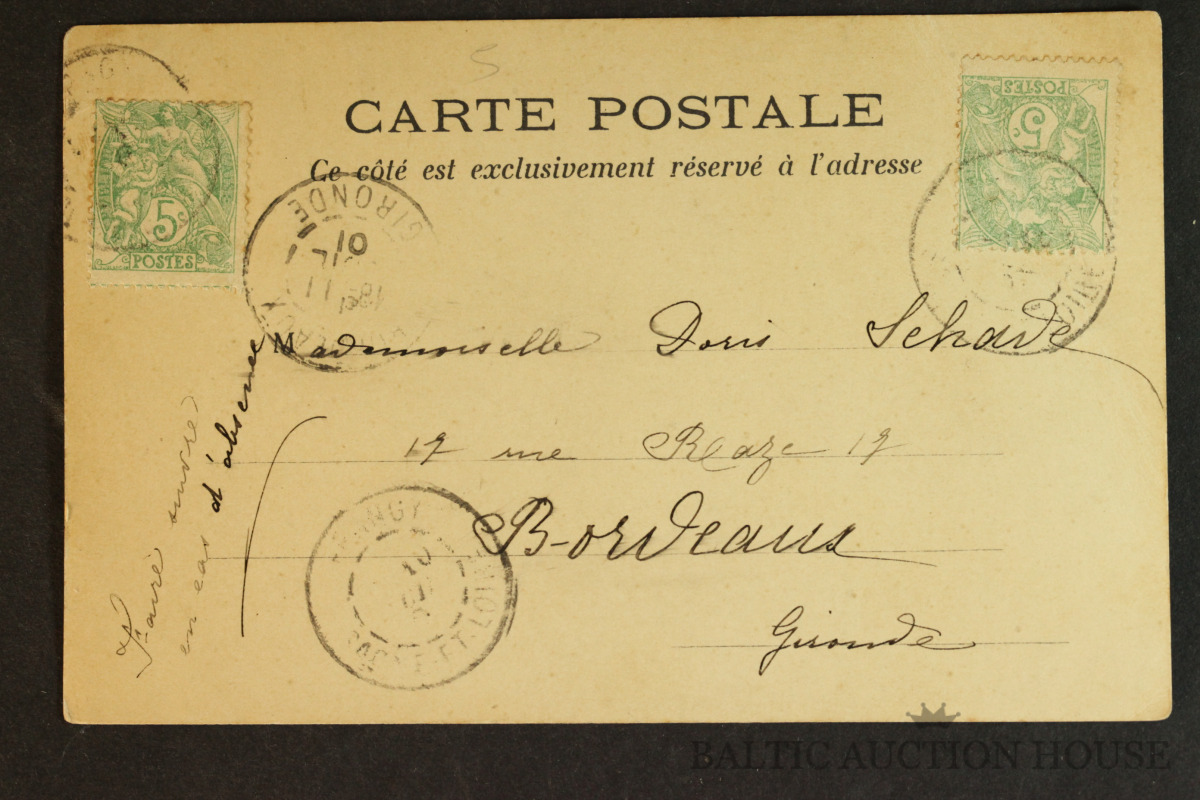 5
CARTE POSTALE
Ce côté est exclusivement réservé à l'adresse
5c
POSTES
POSTES
5c
GIRONDE
Mademoiselle Doris Schade
17 rue Raze 17
Bordeaux
Gironde
Faire suivre
en cas d'absence
SAÔNE-ET-LOIRE
BALTIC AUCTION HOUSE